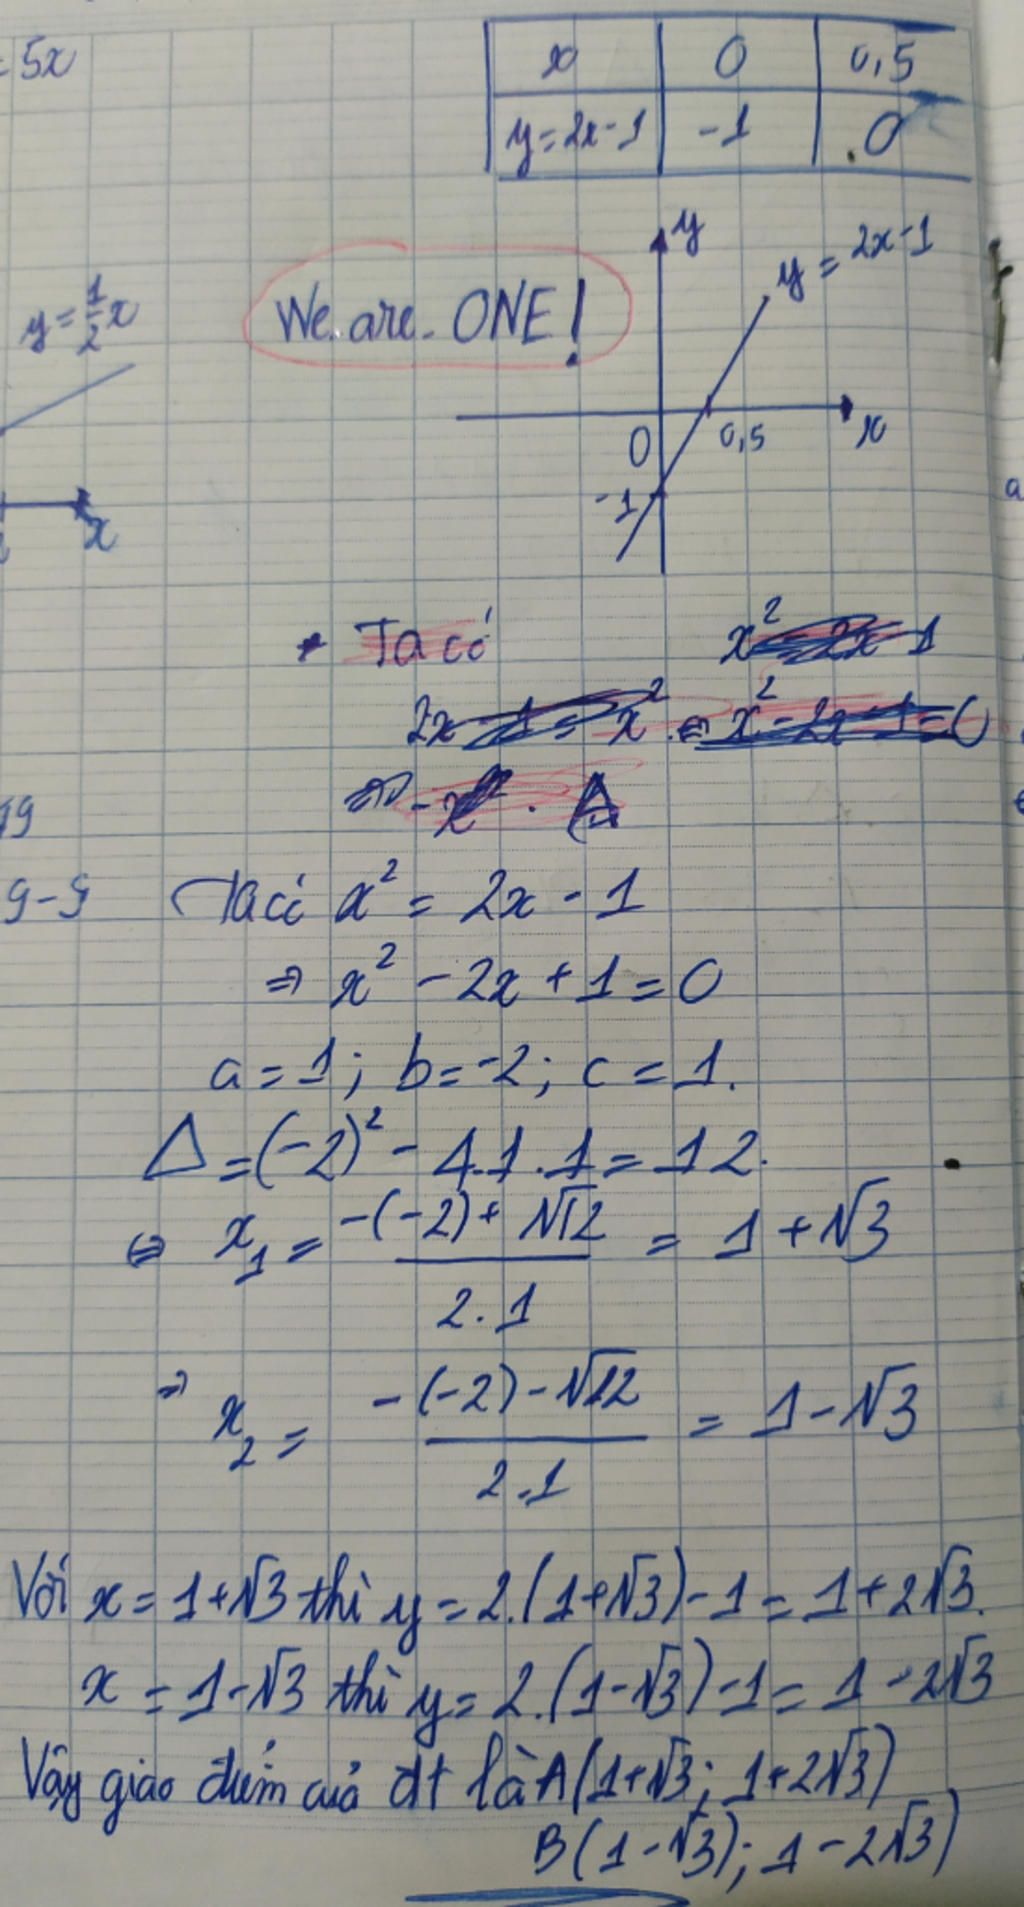 = 5x
x 0 0,5
y = 2x - 1 -1 0
y
y = 2x - 1
y = 1/2 x
We are ONE!
0 0,5 x
-1
x
* Ta có
x² - 2x - 1
2x - 1 = x² ⇔ x² - 2x - 1 = 0
Δ
19
9 - 9
Ta có x² = 2x - 1
⇒ x² - 2x + 1 = 0
a = 1; b = -2; c = 1.
Δ = (-2)² - 4.1.1 = 12.
⇔ x₁ = (-(-2) + √12) / 2.1 = 1 + √3
⇒ x₂ = (-(-2) - √12) / 2.1 = 1 - √3
Với x = 1 + √3 thì y = 2.(1+√3) - 1 = 1 + 2√3.
x = 1 - √3 thì y = 2.(1-√3) - 1 = 1 - 2√3
Vậy giao điểm của đt là A(1+√3; 1+2√3)
B(1-√3); 1-2√3)